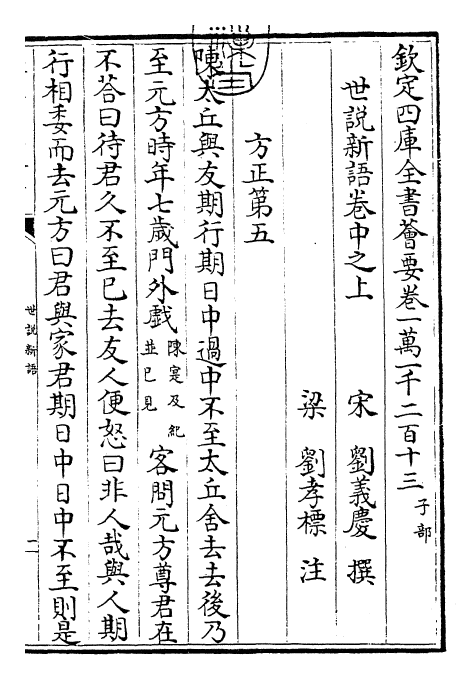 欽定四庫全書薈要卷一萬一千二百十三 子部
世說新語卷中之上
宋 劉義慶 撰
梁 劉孝標 注
方正第五
陳太丘與友期行期日中過中不至太丘舍去去後乃
至元方時年七歲門外戲陳寔及紀並已見客問元方尊君在
不荅曰待君久不至已去友人便怒曰非人哉與人期
行相委而去元方曰君與家君期日中日中不至則是
世說新語